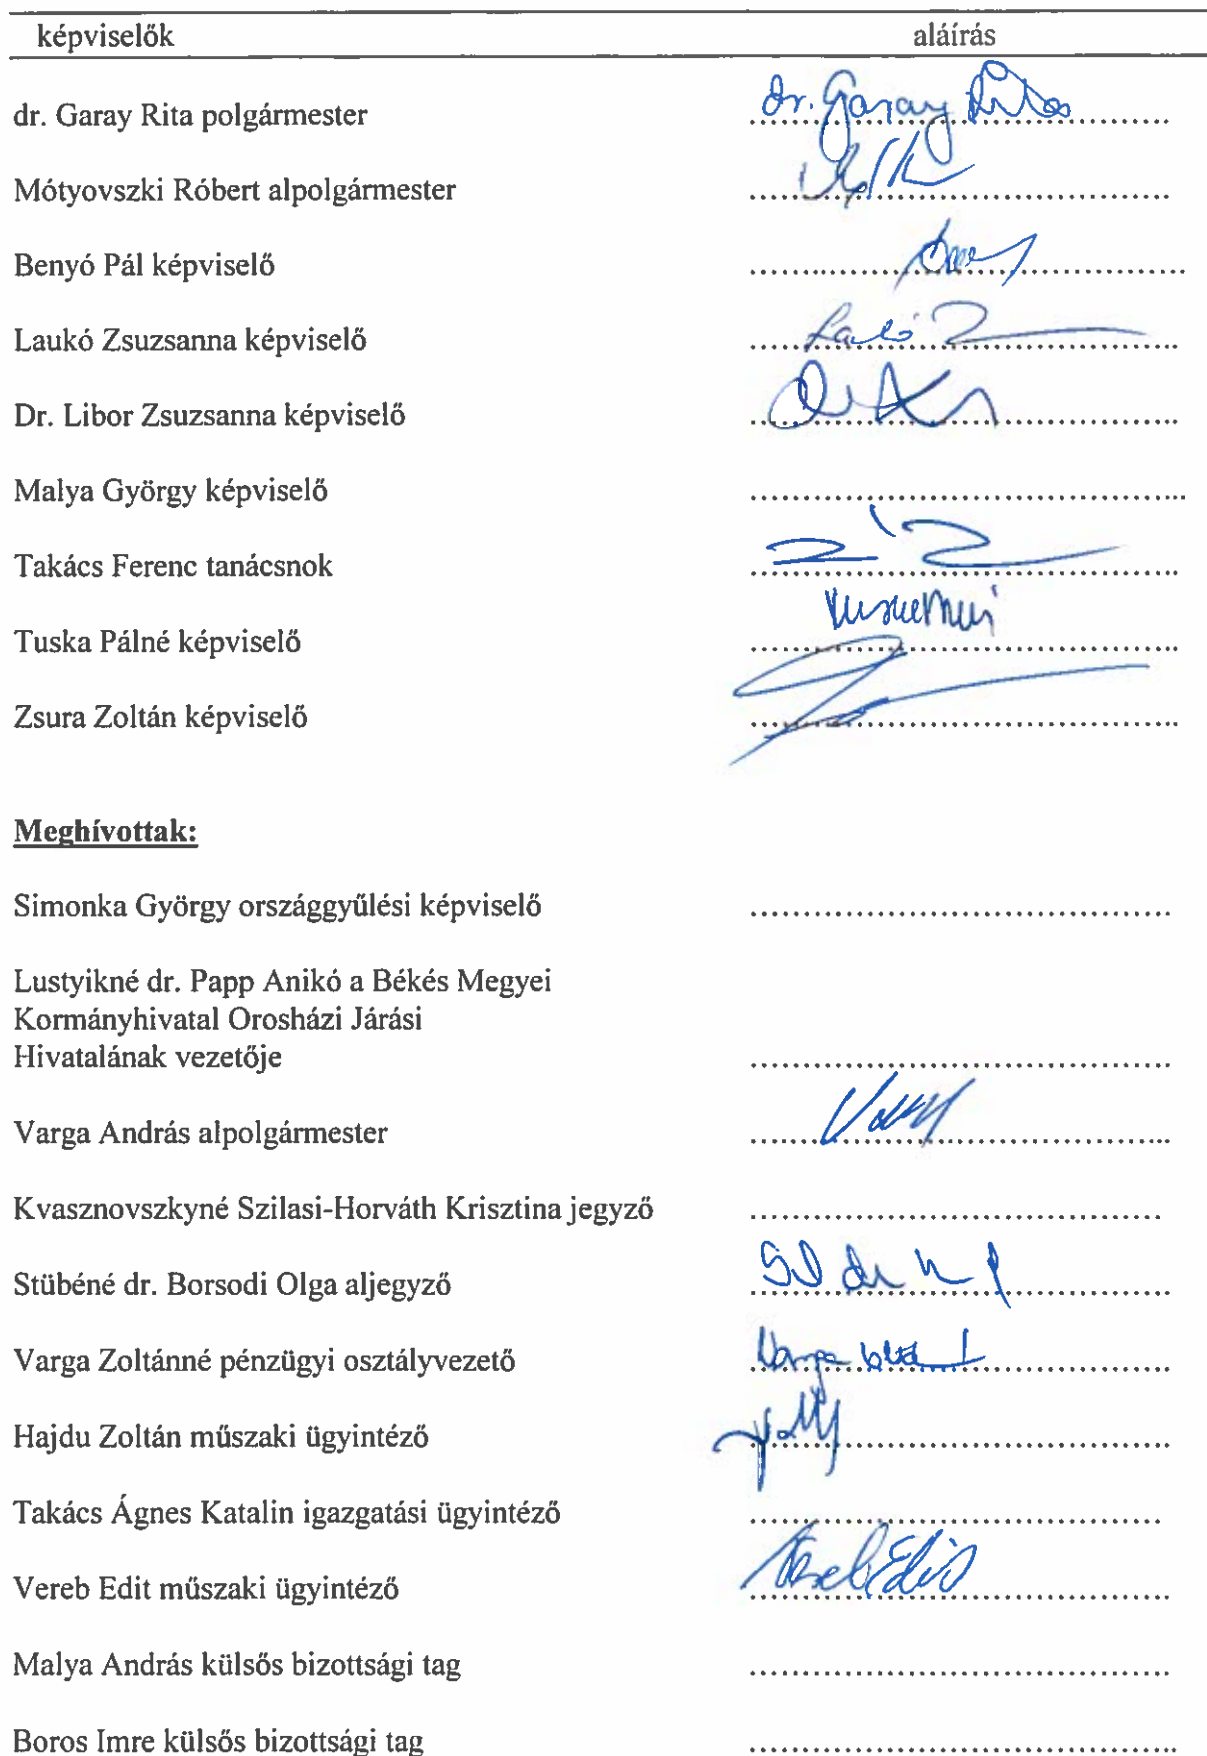 képviselők aláírás
dr. Garay Rita polgármester dr. Garay Rita
Mótyovszki Róbert alpolgármester
Benyó Pál képviselő
Laukó Zsuzsanna képviselő
Dr. Libor Zsuzsanna képviselő
Malya György képviselő
Takács Ferenc tanácsnok
Tuska Pálné képviselő
Zsura Zoltán képviselő
Meghívottak:
Simonka György országgyűlési képviselő
Lustyikné dr. Papp Anikó a Békés Megyei
Kormányhivatal Orosházi Járási
Hivatalának vezetője
Varga András alpolgármester
Kvasznovszkyné Szilasi-Horváth Krisztina jegyző
Stübéné dr. Borsodi Olga aljegyző
Varga Zoltánné pénzügyi osztályvezető Varga
Hajdu Zoltán műszaki ügyintéző
Takács Ágnes Katalin igazgatási ügyintéző
Vereb Edit műszaki ügyintéző Vereb Edit
Malya András külsős bizottsági tag
Boros Imre külsős bizottsági tag